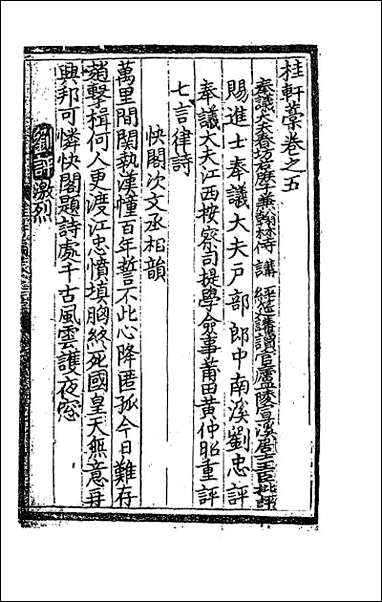 桂軒藁卷之五
奉議大夫春坊左庶子兼翰林侍講經筵講讀官廬陵夏溪居士王臣批評
賜進士奉議大夫戶部郎中南溪劉忠評
奉議大夫江西按察司提學僉事莆田黃仲昭重評
七言律詩
快閣次文丞相韻
萬里間關執漢幢百年誓不此心降匿孤今日難存
趙擊楫何人更渡江忠憤填胸終死國皇天無意再
興邦可憐快閣題詩處千古風雲護夜窓
劉評激烈